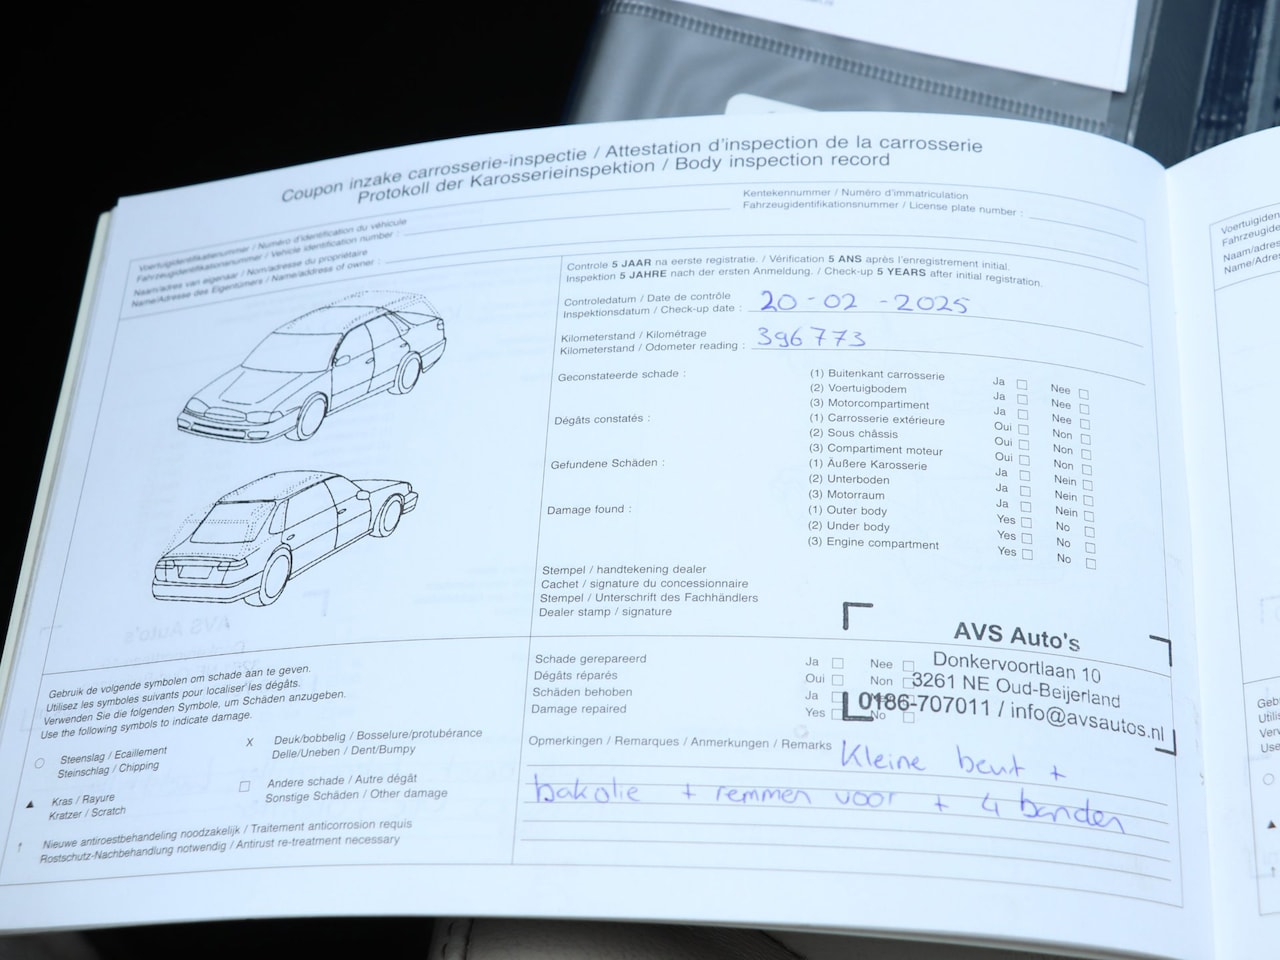 Coupon inzake carrosserie-inspectie / Attestation d'inspection de la carrosserie
Protokoll der Karosserieinspektion / Body inspection record
Voertuigidentifikatienummer / Numéro d'identification du véhicule
Fahrzeugidentifikationsnummer / Vehicle identification number :
Kentekennummer / Numéro d'immatriculation
Fahrzeugidentifikationsnummer / License plate number :
Naam/adres van eigenaar / Nom/adresse du propriétaire
Name/Adresse des Eigentümers / Name/address of owner :
Controle 5 JAAR na eerste registratie. / Vérification 5 ANS après l'enregistrement initial.
Inspektion 5 JAHRE nach der ersten Anmeldung. / Check-up 5 YEARS after initial registration.
Controledatum / Date de contrôle
Inspektionsdatum / Check-up date : 20-02-2025
Kilometerstand / Kilométrage
Kilometerstand / Odometer reading : 396773
Geconstateerde schade : (1) Buitenkant carrosserie Ja Nee
(2) Voertuigbodem Ja Nee
(3) Motorcompartiment Ja Nee
Dégâts constatés : (1) Carrosserie extérieure Oui Non
(2) Sous châssis Oui Non
(3) Compartiment moteur Oui Non
Gefundene Schäden : (1) Äußere Karosserie Ja Nein
(2) Unterboden Ja Nein
(3) Motorraum Ja Nein
Damage found : (1) Outer body Yes No
(2) Under body Yes No
(3) Engine compartment Yes No
Stempel / handtekening dealer
Cachet / signature du concessionnaire
Stempel / Unterschrift des Fachhändlers
Dealer stamp / signature
AVS Auto's
Donkervoortlaan 10
3261 NE Oud-Beijerland
0186-707011 / info@avsautos.nl
Schade gerepareerd Ja Nee
Dégâts réparés Oui Non
Schäden behoben Ja
Damage repaired Yes No
Opmerkingen / Remarques / Anmerkungen / Remarks Kleine beurt +
bakolie + remmen voor + 4 banden
Gebruik de volgende symbolen om schade aan te geven.
Utilisez les symboles suivants pour localiser les dégâts.
Verwenden Sie die folgenden Symbole, um Schäden anzugeben.
Use the following symbols to indicate damage.
Steenslag / Ecaillement
Steinschlag / Chipping
X Deuk/bobbelig / Bosselure/protubérance
Delle/Uneben / Dent/Bumpy
Kras / Rayure
Kratzer / Scratch
Andere schade / Autre dégât
Sonstige Schäden / Other damage
↑ Nieuwe antiroestbehandeling noodzakelijk / Traitement anticorrosion requis
Rostschutz-Nachbehandlung notwendig / Antirust re-treatment necessary